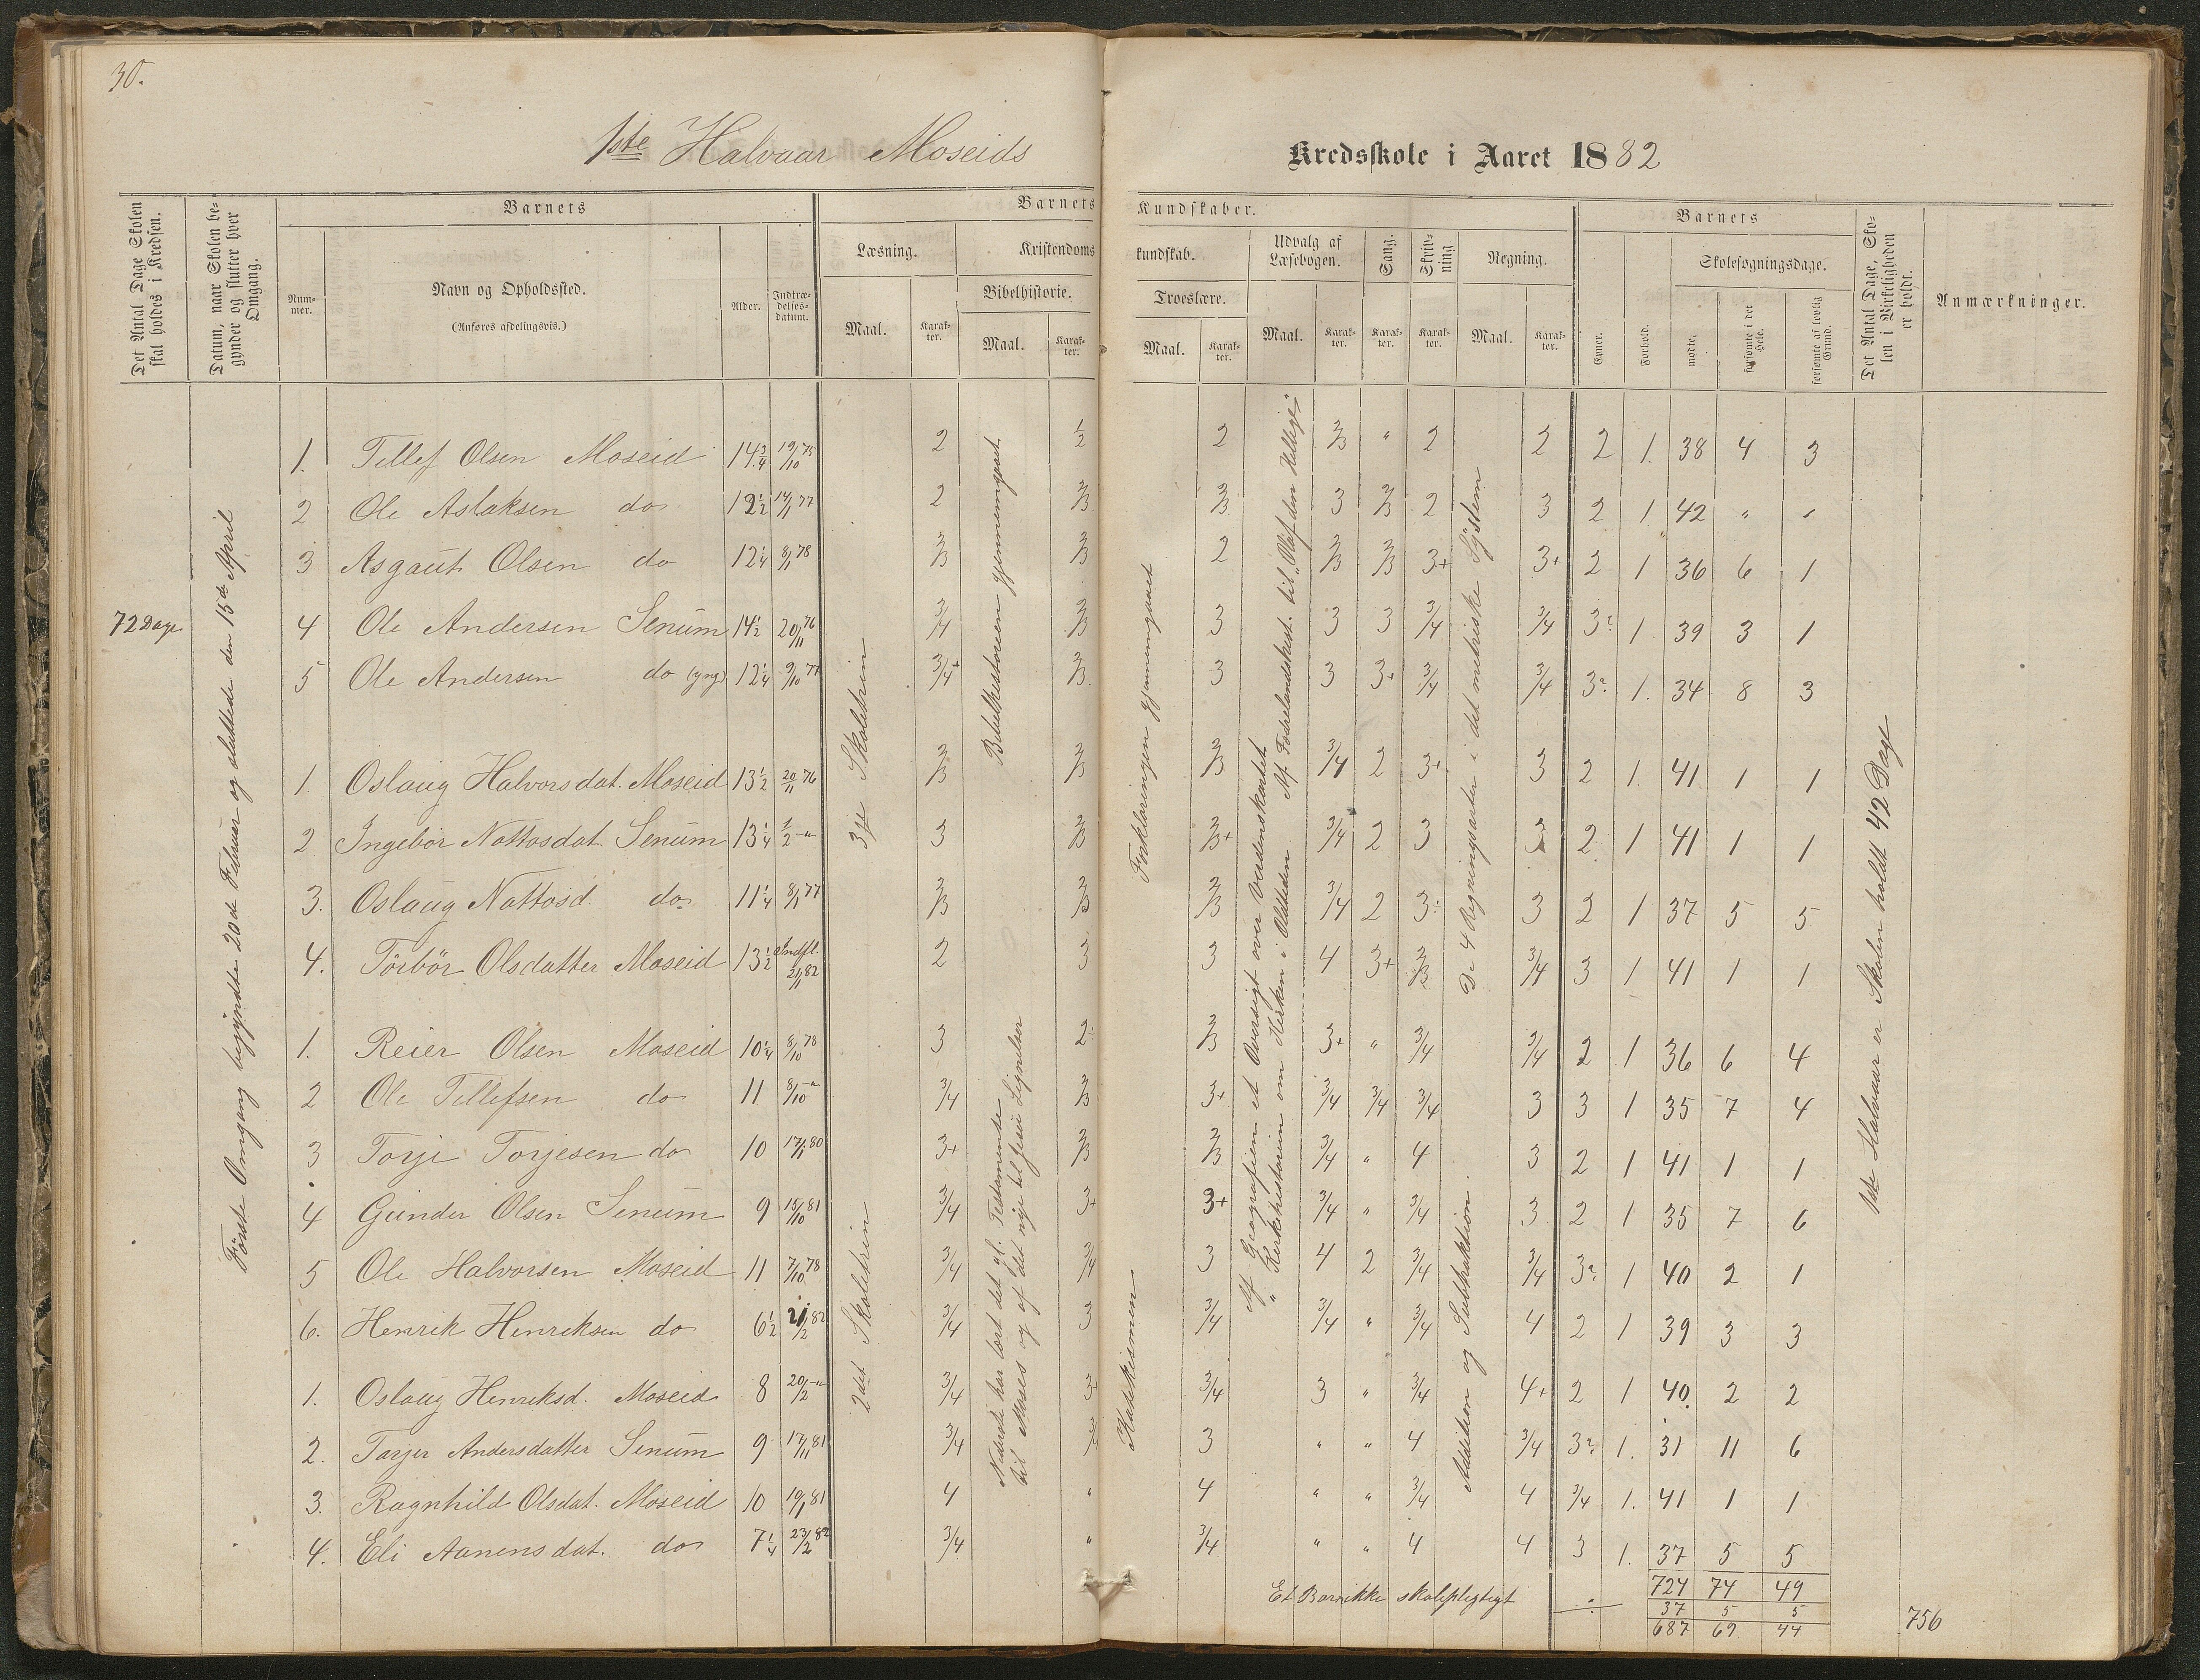 30.
1ste Halvaar Moseids
Kredsskole i Aaret 1882
Det Antal Dage Skolen skal holdes i Kredsen.
Datum, naar Skolen begynder og slutter hver Omgang.
Barnets
Nummer.
Navn og Opholdssted.
(Anføres afdelingsvis.)
Alder.
Indtrædelsesdatum.
Barnets Kundskaber.
Læsning.
Maal.
Karakter.
Kristendomskundskab.
Bibelhistorie.
Maal.
Karakter.
Troeslære.
Maal.
Karakter.
Udvalg af Læsebogen.
Maal.
Karakter.
Sang.
Karakter.
Skrivning
Karakter.
Regning.
Maal.
Karakter.
Barnets
Evner.
Forhold.
Skolesøgningsdage.
mødte.
forsømte i det Hele.
forsømte af lovlig Grund.
Det Antal Dage, Skolen i Virkeligheden er holdt.
Anmærkninger.
72 Dage
Første Omgang begyndte 20de Februar og sluttede den 15de April
3je Skoletrin
2det Skoletrin
Bibelhistorien gjennemgaaet.
Nederste har lært det gl. Testamente
til Moses og af det nye til Jesu Lignelser
Forklaringen gjennemgaaet
Katekismen
Af Geografien et Oversigt over Verdenskartet. Af Fædrelandshist. til "Olaf den Hellige"
" Kirkehistorien om Kirken i Oldtiden
De 4 Regningsarter i det metriske System
Addition og Subtraktion.
1ste Halvaar er Skolen holdt 42 Dage
1. Tellef Olsen Moseid 14 3/4 19/10 75 2 1/2 2 2/3 " 2 2 2 1. 38 4 3
2 Ole Aslaksen do 12 1/2 14/1 77 2 2/3 2/3 3 2/3 2 3 2 1 42 " "
3 Asgaut Olsen do 12 1/4 8/1 78 2/3 2/3 2 2/3 2/3 3+ 3+ 2 1 36 6 1
4 Ole Andersen Senum 14 1/2 20/11 76 3/4 2/3 3 3 3 3/4 3/4 3? 1. 39 3 1
5 Ole Andersen do (yng) 12 1/4 9/10 77 3/4+ 2/3 3 3 3+ 3/4 3/4 3? 1. 34 8 3
1. Oslaug Halvorsdat. Moseid 13 1/2 20/11 76 2/3 2/3 2/3 3/4 2 3+ 3 2 1. 41 1 1
2 Ingebor Nottosdat. Senum 13 1/4 1/2 -"- 3 2/3 2/3+ 3/4 2 3 3 2 1 41 1 1
3. Oslaug Nottosd. do 11 1/4 8/1 77 2/3 2/3 2/3 3/4 2 3÷ 3 2 1 37 5 5
4. Törbör Olsdatter Moseid 13 1/2 indfl. 21/1 82 2 3 3 4 3+ 2/3 3/4 3 1 41 1 1
1. Reier Olsen Moseid 10 1/4 8/10 78 3 2÷ 2/3 3+ " 3/4 3/4 2 1 36 6 4
2 Ole Tellefsen do 11 8/10 -"- 3/4 2/3 3+ 3/4 3/4 3/4 3 3 1 35 7 4
3 Torje Torjesen do 10 17/1 80 3+ 2/3 2/3 3/4 " 4 3 2 1 41 1 1
4 Gunder Olsen Senum 9 15/10 81 3/4 3+ 3+ 3/4 " 3/4 3 2 1 35 7 6
5 Ole Halvorsen Moseid 11 7/10 78 3/4 3/4 3 4 2 3/4 3/4 3? 1 40 2 1
6. Henrik Henriksen do 6 1/2 21/2 82 3/4 3 3/4 3/4 " 3/4 4 2 1 39 3 3
1. Oslaug Henriksd. Moseid 8 20/2 -"- 3/4 3+ 3/4 3 " 3/4 4+ 2 1 40. 2 2
2. Tarjer Andersdatter Senum 9 17/11 81 3/4 3/4 3 " " 4 3/4 3? 1. 31 11 6
3. Ragnhild Olsdat. Moseid 10 19/1 81 4 " 4 " " 3/4 4 3/4 1. 41 1 1
4. Eli Aanensdat. do 7 1/4 23/2 82 3/4 " 3/4 " " 4 4 3 1. 37 5 5
724 74 49
Et Barn ikke skolepligtigt ÷ 37 5 5
687 69 44
756